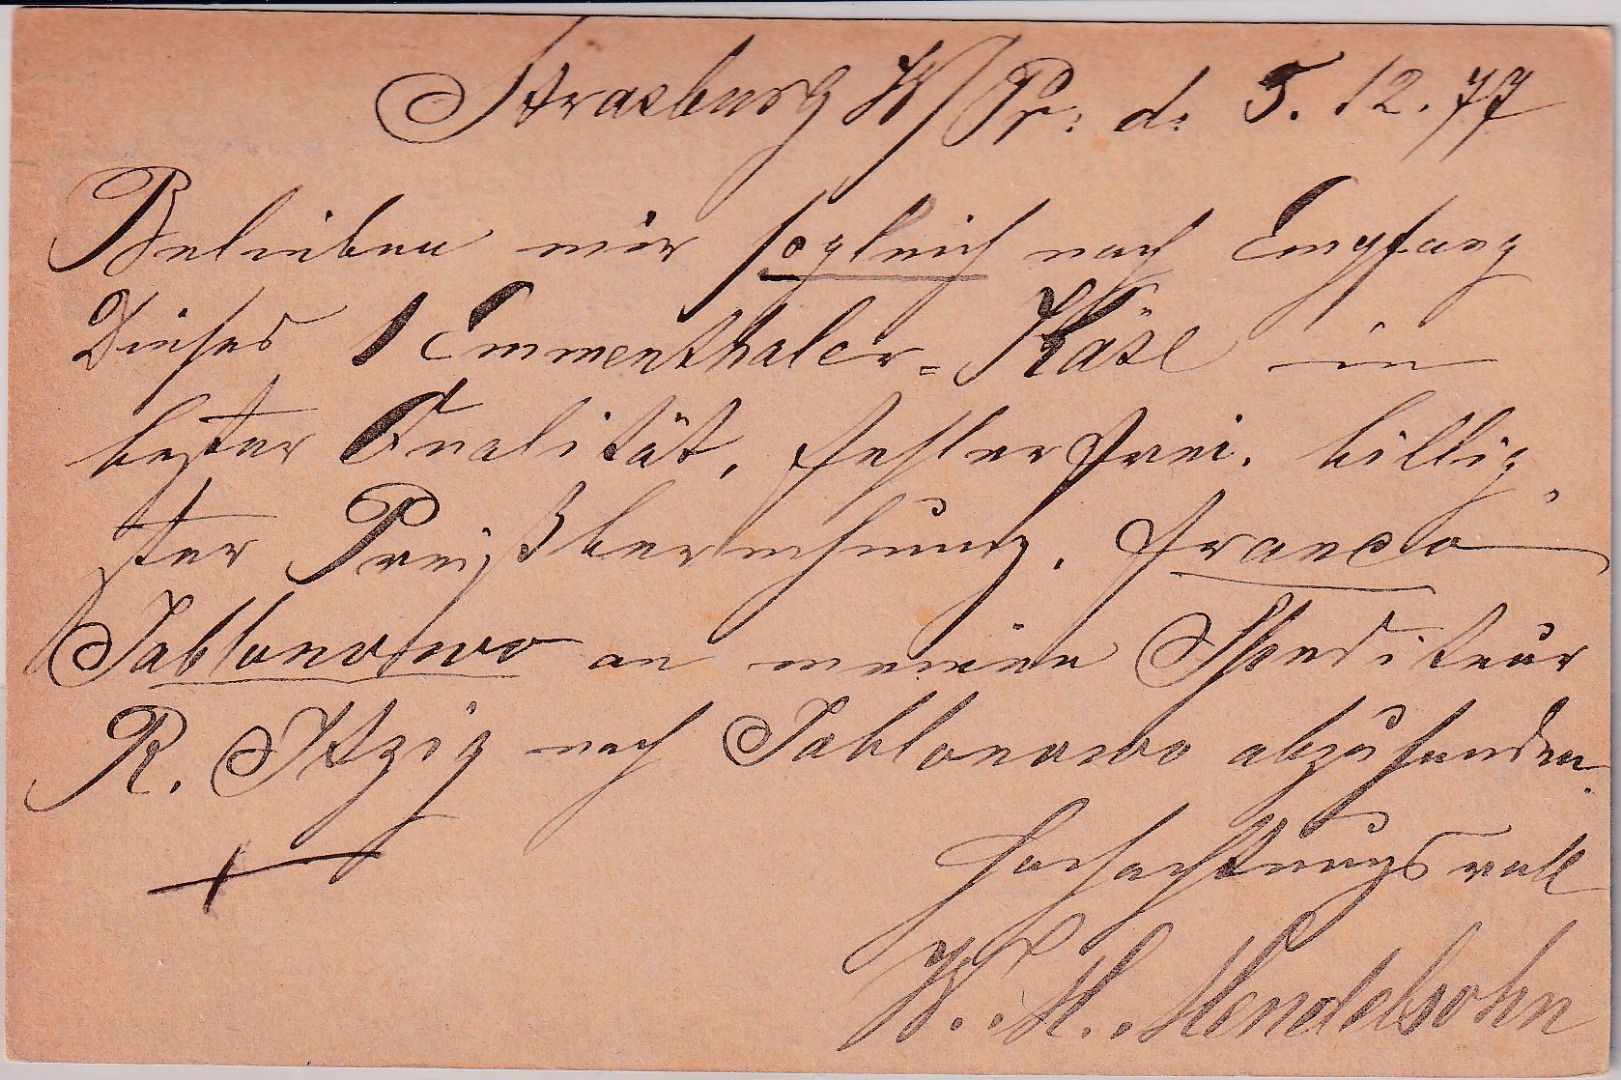 Strasburg W/Pr: d: 5. 12. 77
Belieben mir sogleich nach Empfang
Dieses 1 Emmenthaler=Käse in
bester Qualität, fehlerfrei. billig¬
ster Preißberechnung. franco
Jablonowo an meinen Spediteur
R. Itzig nach Jablonowo abzusenden.
Hochachtungsvoll
W. M. Mendelsohn